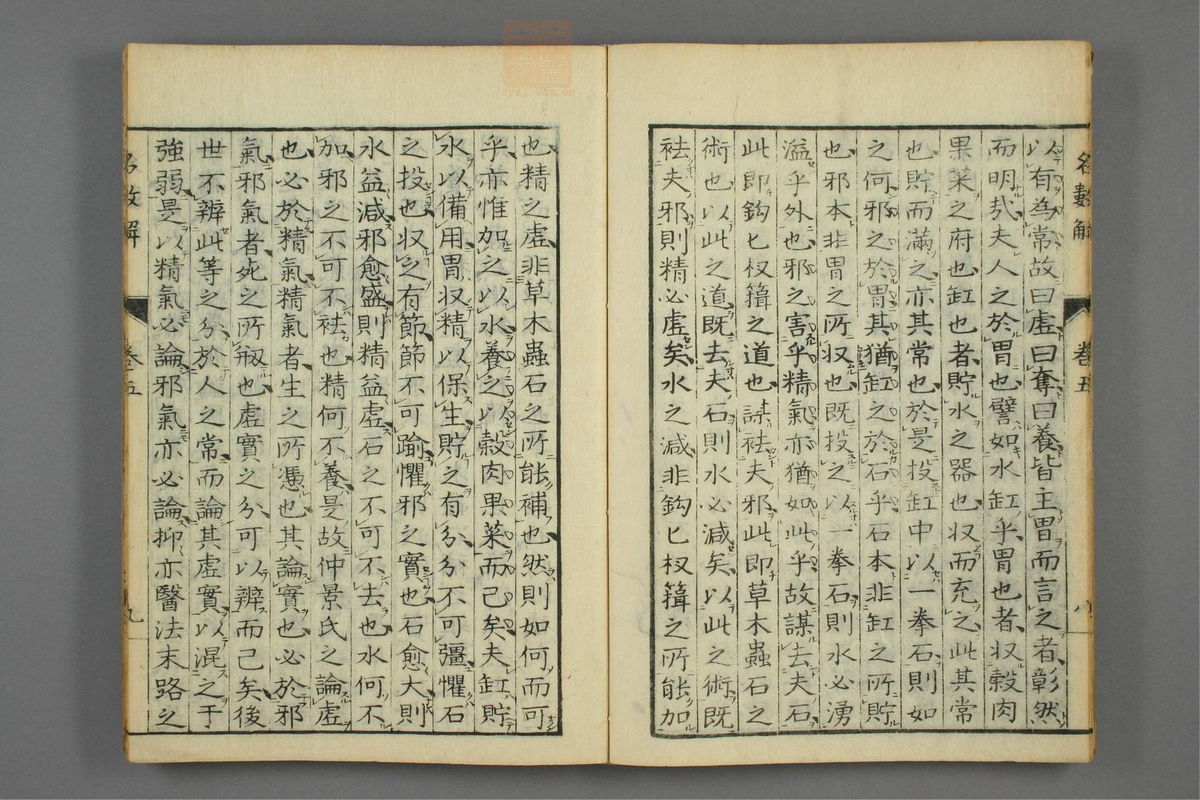 以有為常故曰虛曰奪曰養皆主胃而言之者彰然
而明哉夫人之於胃也譬如水缸乎胃也者収穀肉
果菜之府也缸也者貯水之器也収而充之此其常
也貯而滿之亦其常也於是投缸中以一拳石則如
之何邪之於胃其猶缸之於石乎石本非缸之所貯
也邪本非胃之所収也既投之以一拳石則水必湧
溢乎外也邪之害乎精氣亦猶如此乎故謀去夫石
此即鈎匕杈簎之道也謀祛夫邪此即草木蟲石之
術也以此之道既去夫石則水必減矣以此之術既
祛夫邪則精必虛矣水之減非鈎匕杈簎之所能加
名數解 卷五 八
也精之虛非草木蟲石之所能補也然則如何而可
乎亦惟加之以水養之以穀肉果菜而已矣夫缸貯
水以備用胃収精以保生貯之有分分不可彊懼石
之投也収之有節節不可踰懼邪之實也石愈大則
水益減邪愈盛則精益虛石之不可不去也水何不
加邪之不可不祛也精何不養是故仲景氏之論虛
也必於精氣精氣者生之所憑也其論實也必於邪
氣邪氣者死之所叛也虛實之分可以辨而已矣後
世不辨此等之分於人之常而論其虛實以混之于
強弱是以精氣必論邪氣亦必論抑亦醫法末路之
名數解 卷五 九